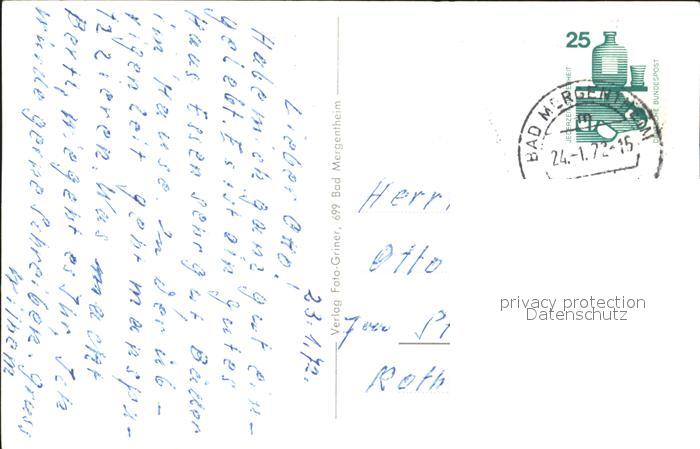 23.1.72.
Lieber Otto!
Habe mich ganz gut ein-
gelebt. Es ist ein gutes
Haus Essen sehr gut Bäder
im Hause. In der üb-
rigen Zeit geht man spa-
zzieren. Was macht
Berta, wie geht es Ihr, Ich
würde gerne schreiben. Gruss
Wilhelm
Verlag Foto-Griner, 699 Bad Mergentheim
25
JEDERZEIT SICHERHEIT
DEUTSCHE BUNDESPOST
BAD MERGENTHEIM
24.-1.72-15
Herr
Otto
Roth
privacy protection
Datenschutz